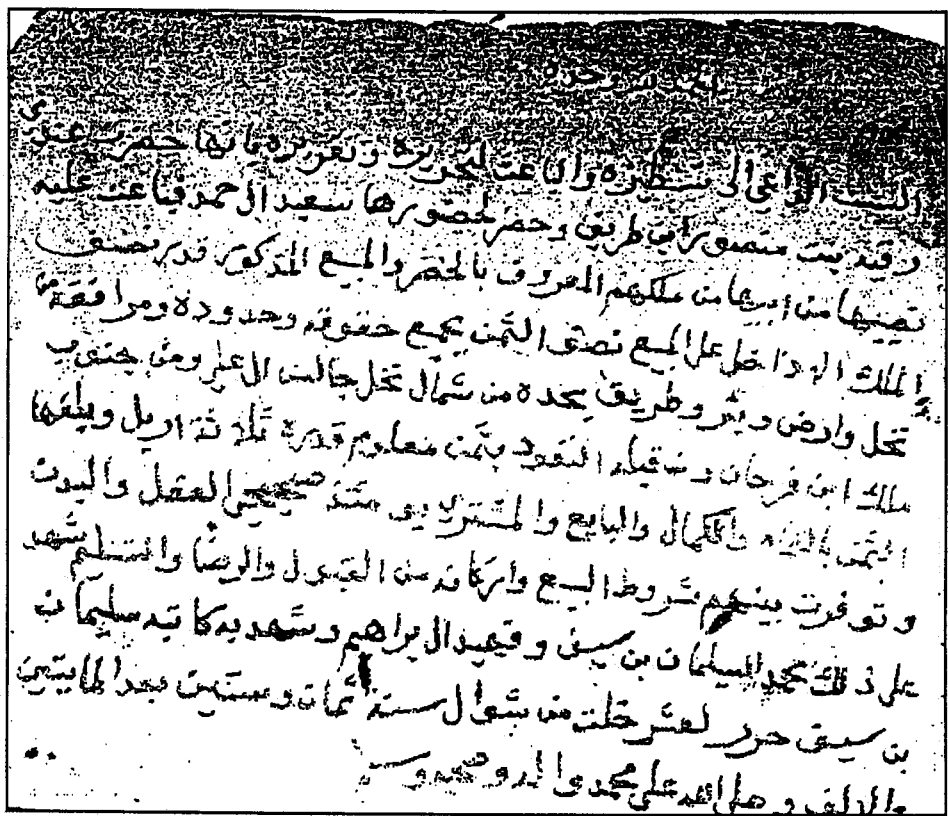 الحمد لله وحده
السبب الداعي الى تسطيره والباعث لتحريره وتقريره بانها حضرت عندي
رقية بنت منصور ابن طريف وحضر لحضورها سعيد ال حمد فباعت عليه
نصيبها من ابيها من ملكهم المعروف بالخضر والمبيع المذكور قدر نصف
الملك داخل على المبيع نصف الثمن بجميع حقوقه وحدوده ومرافقه من
نخل وارض وبئر وطريق يحده من شمال نخل جالس ال علي ومن جنوب
ملك ابن فرحان ومن قبله النفود بثمن معلوم قدره ثلاثة اريل وبلغها
الثمن بالتمام والكمال والبايع والمشتري يومئذ صحيحي العقل والبدن
وتوفرت بينهم شروط البيع واركانه من القبول والرضا والتسليم شهد
على ذلك محمد السليمان بن سيف وفهيد ال براهيم وشهد به كاتبه سليمان
بن سيف حرر لعشر خلت من شوال سنة ثمان وستين بعد المايتين
والالف وصلى الله على محمد واله وصحبه وسلم